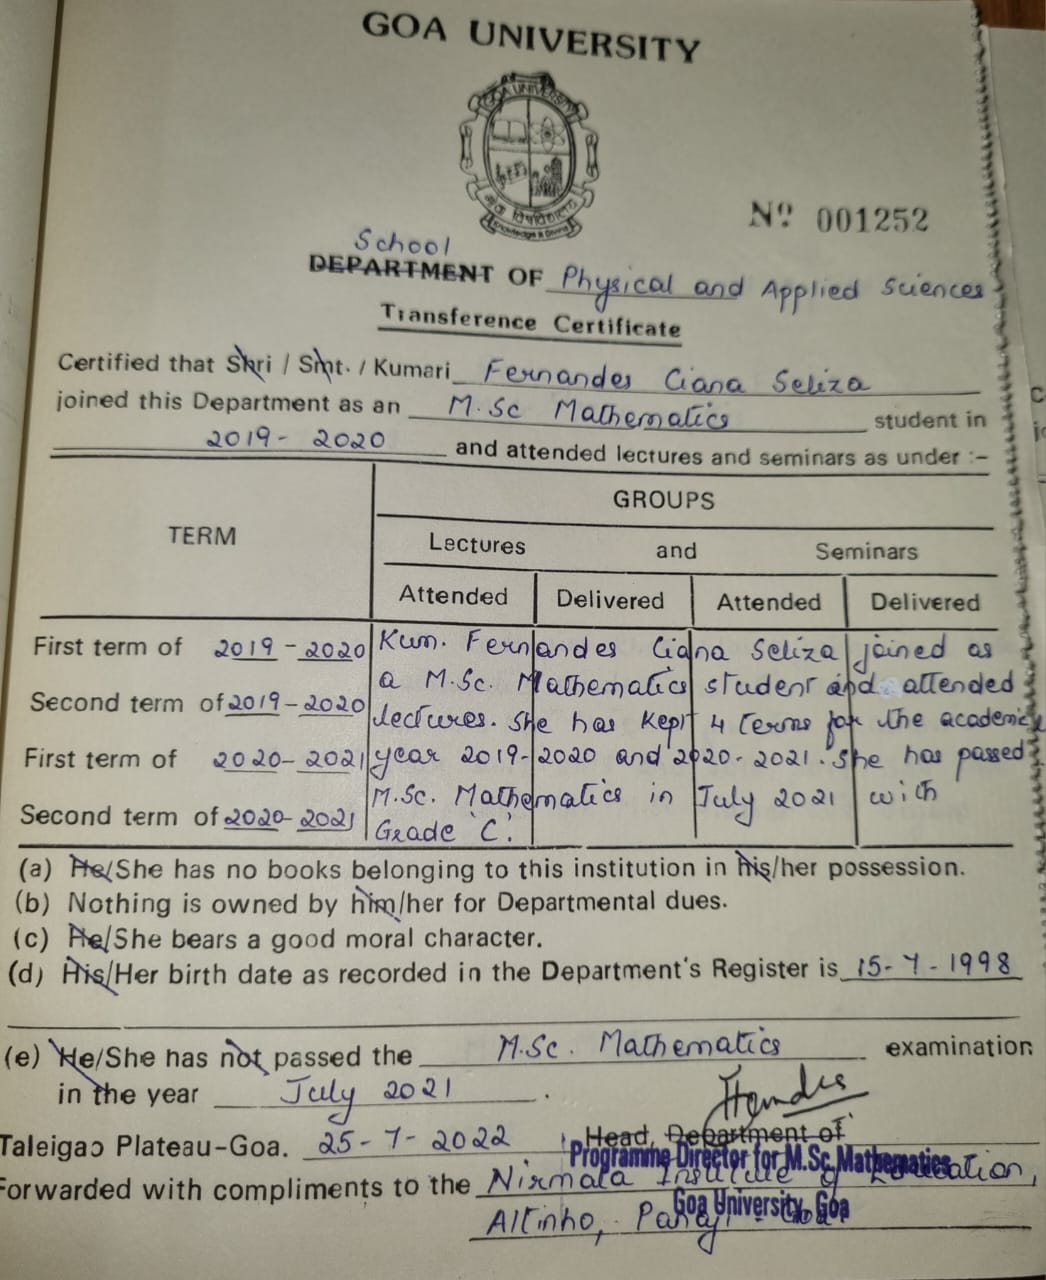 GOA UNIVERSITY
GOA UNIVERSITY
Knowledge is Divine
Nº 001252
School
DEPARTMENT OF Physical and Applied Sciences
Transference Certificate
Certified that Shri / Smt. / Kumari Fernandes Ciana Seliza
joined this Department as an M.Sc Mathematics student in
2019 - 2020 and attended lectures and seminars as under :-
GROUPS
TERM
Lectures and Seminars
Attended Delivered Attended Delivered
First term of 2019 - 2020 Kum. Fernandes Ciana Seliza joined as
a M.Sc. Mathematics student and attended
Second term of 2019 - 2020 lectures. She has kept 4 terms for the academic
First term of 2020 - 2021 year 2019-2020 and 2020-2021. She has passed
M.Sc. Mathematics in July 2021 with
Second term of 2020 - 2021 Grade 'C'.
(a) He/She has no books belonging to this institution in his/her possession.
(b) Nothing is owned by him/her for Departmental dues.
(c) He/She bears a good moral character.
(d) His/Her birth date as recorded in the Department's Register is 15-7-1998
(e) He/She has not passed the M.Sc. Mathematics examination
in the year July 2021.
Taleigao Plateau-Goa. 25-7-2022 Head, Department of
Programme Director for M.Sc Mathematics
Forwarded with compliments to the Nirmala Institute of Education,
Goa University, Goa
Altinho, Panaji - Goa.